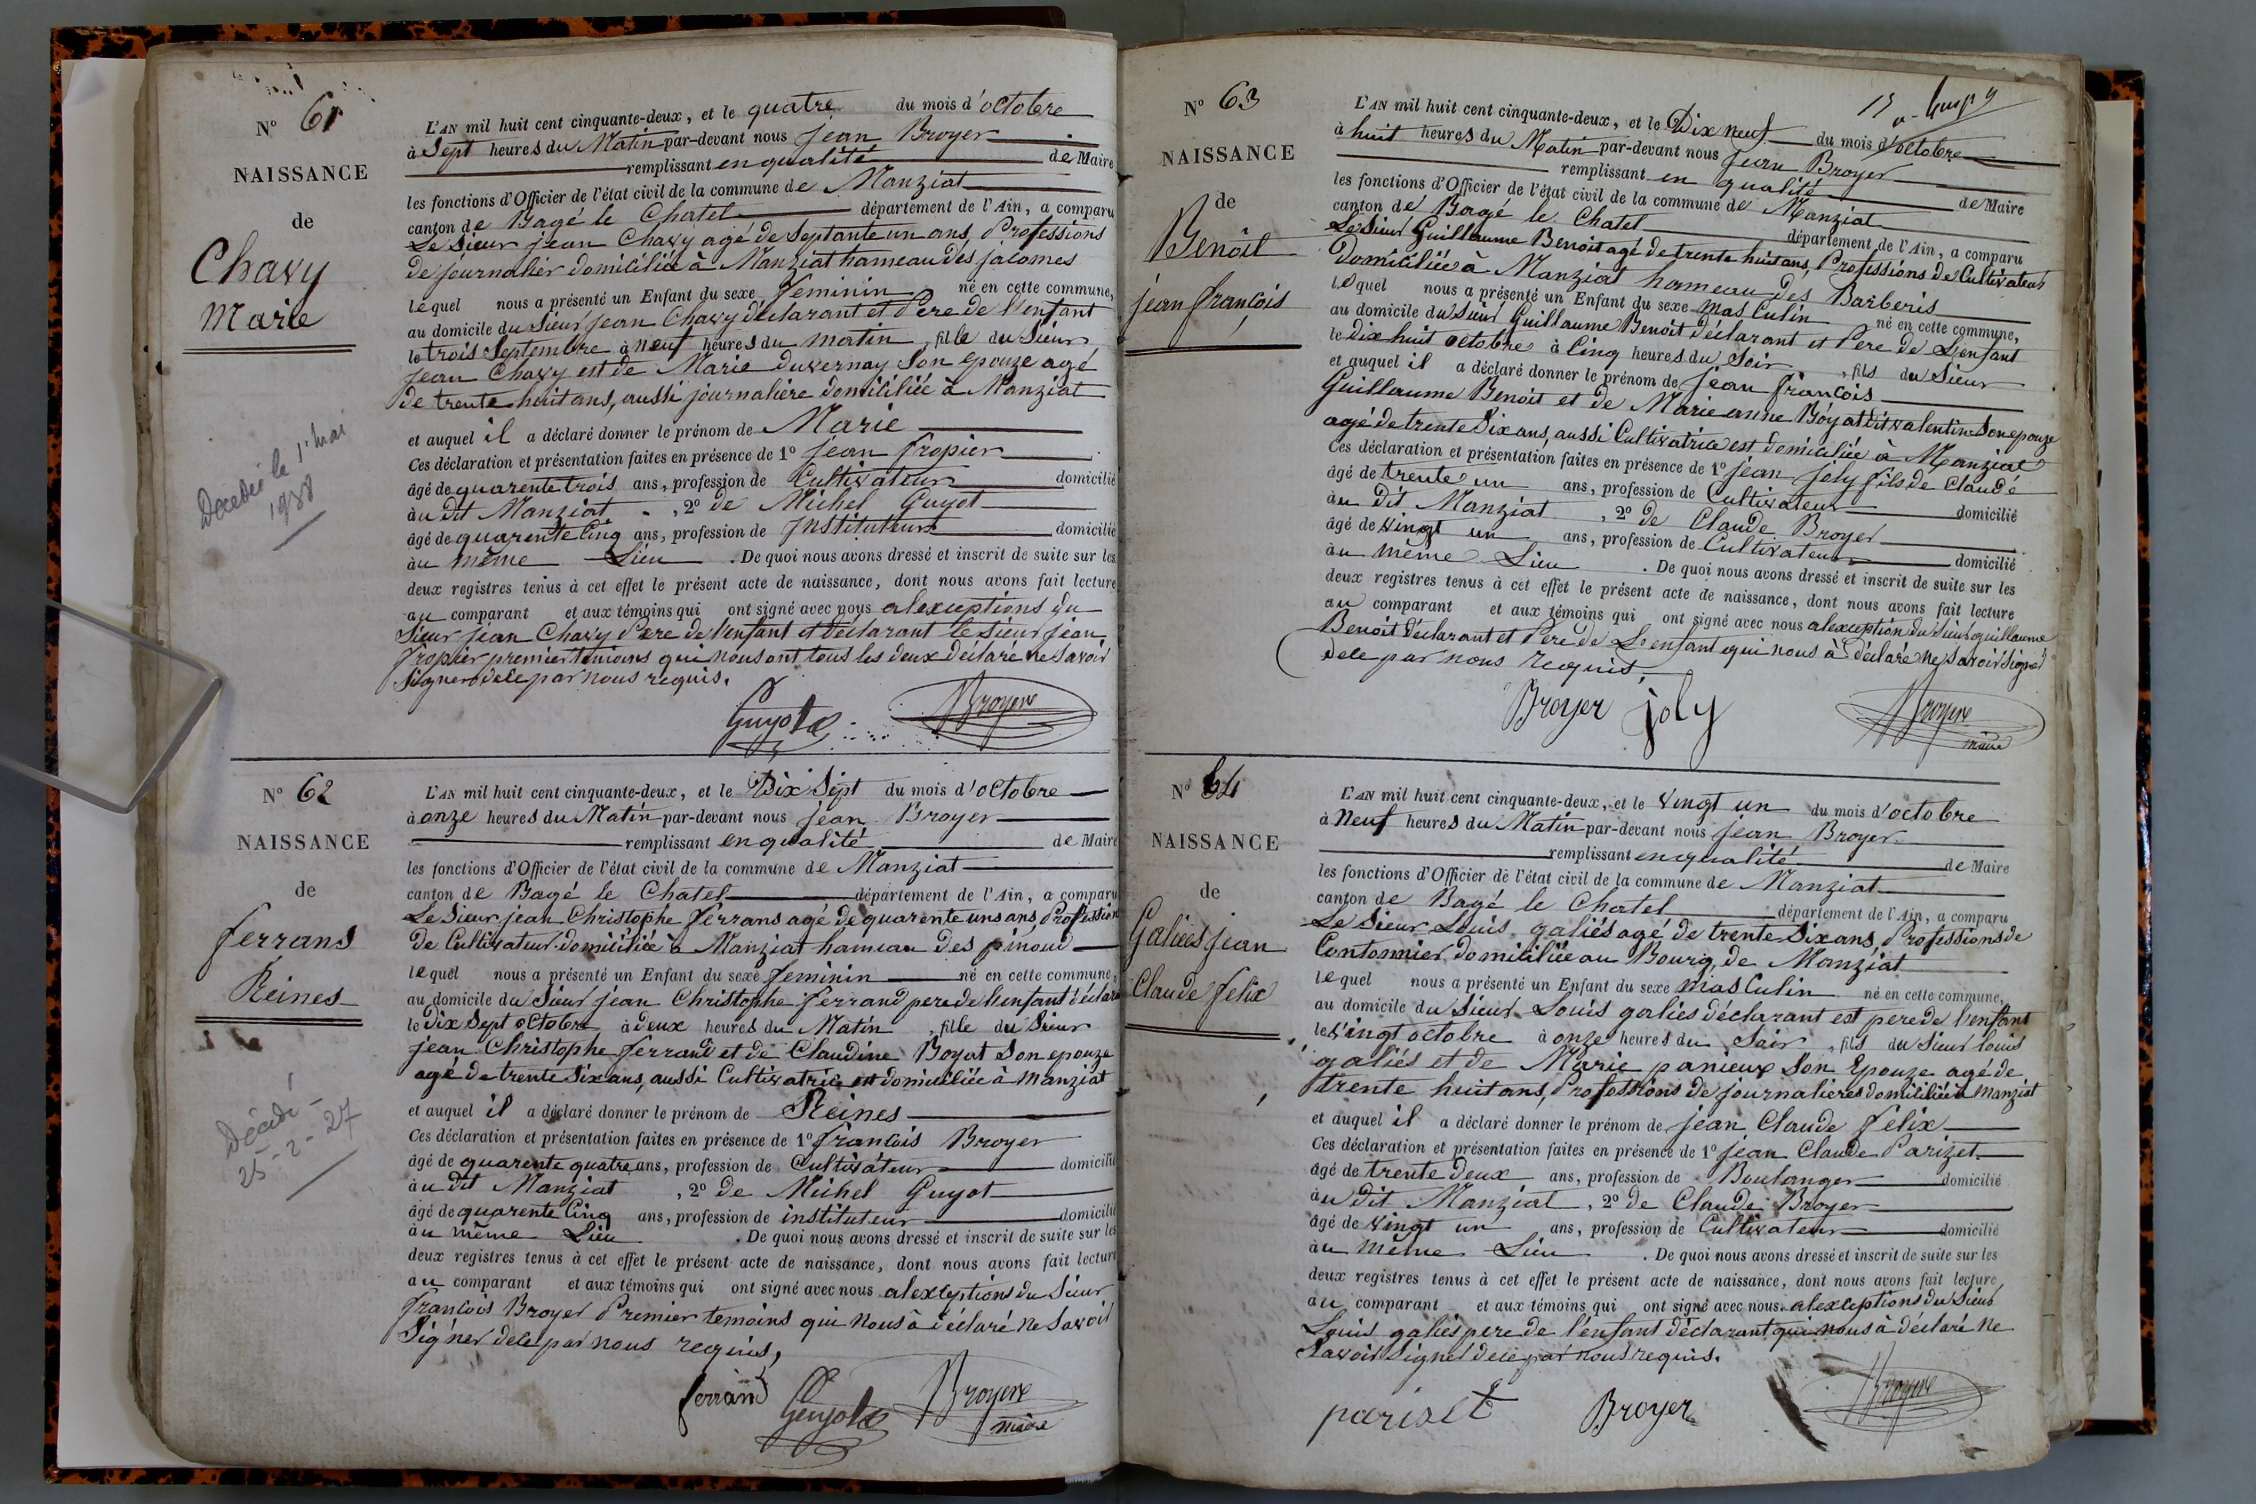 N° 61
NAISSANCE
de
Chavy
Marie
Décédée le 1er mai
1938
L'AN mil huit cent cinquante-deux, et le quatre du mois d'octobre
à Sept heures du Matin par-devant nous jean Broyer
remplissant en qualité de Maire
les fonctions d'Officier de l'état civil de la commune de Manziat
canton de Bagé le Chatel département de l'Ain, a comparu
Le Sieur jean Chavy agé de Septante un ans, Professions
de journalier domiciliéé à Manziat hameau des jacomes
lequel nous a présenté un Enfant du sexe feminin né en cette commune,
au domicile du Sieur jean Chavy déclarant et Pere de l'enfant
le trois Septembre à neuf heures du matin, fille du Sieur
jean Chavy est de Marie duvernay Son epouze agé
de trente huit ans, aussi journalière domiciliéé à Manziat
et auquel il a déclaré donner le prénom de Marie
Ces déclaration et présentation faites en présence de 1° jean fropier
âgé de quarente trois ans, profession de Cultivateur domicilié
àu dit Manziat, 2° de Michel Guyot
âgé de quarente Cinq ans, profession de Instituteur domicilié
àu même Lieu. De quoi nous avons dressé et inscrit de suite sur les
deux registres tenus à cet effet le présent acte de naissance, dont nous avons fait lecture
au comparant et aux témoins qui ont signé avec nous alexceptions du
Sieur jean Chavy Pere de l'enfant et déclarant le Sieur jean
fropier premier témoins qui nous ont tous les deux déclaré ne Savoir
Signer dece par nous requis.
Guyot Broyer
N° 62
NAISSANCE
de
ferrans
Reines
Décédé
25-2-27
L'AN mil huit cent cinquante-deux, et le Dix Sept du mois d'octobre
à onze heures du Matin par-devant nous jean Broyer
remplissant en qualité de Maire
les fonctions d'Officier de l'état civil de la commune de Manziat
canton de Bagé le Chatel département de l'Ain, a comparu
Le Sieur jean Christophe ferrans agé de quarente uns ans, Profession
de Cultivateur domiciliéé à Manziat hameau des pinoud
lequel nous a présenté un Enfant du sexe feminin né en cette commune,
au domicile du Sieur jean Christophe ferrand pere de l'enfant déclara
le dix Sept octobre à deux heures du Matin, fille du Sieur
jean Christophe ferrand et de Claudine Boyat Son epouze
agé de trente Six ans, aussi Cultivatrice est domiciliéé à Manziat
et auquel il a déclaré donner le prénom de Reines
Ces déclaration et présentation faites en présence de 1° francois Broyer
âgé de quarente quatre ans, profession de Cultivateur domicilié
àu dit Manziat, 2° de Michel Guyot
âgé de quarente Cinq ans, profession de instituteur domicilié
àu même Lieu. De quoi nous avons dressé et inscrit de suite sur les
deux registres tenus à cet effet le présent acte de naissance, dont nous avons fait lecture
au comparant et aux témoins qui ont signé avec nous alexceptions du Sieur
francois Broyer Premier temoins qui nous à déclaré ne Savoir
Signer dece par nous requis,
ferrand Guyot Broyer
maire
N° 63
NAISSANCE
de
Benoit
jean francois
L'AN mil huit cent cinquante-deux, et le Dix neuf du mois d'octobre
à huit heures du Matin par-devant nous jean Broyer
remplissant en qualité de Maire
les fonctions d'Officier de l'état civil de la commune de Manziat
canton de Bagé le Chatel département de l'Ain, a comparu
Le Sieur Guillaume Benoit agé de trente huit ans, Professions de Cultivateur
domiciliéé à Manziat hameau des Barberis
lequel nous a présenté un Enfant du sexe masculin né en cette commune,
au domicile du Sieur Guillaume Benoit déclarant et Pere de L'enfant
le dix huit octobre à Cinq heures du Soir, fils du Sieur
et auquel il a déclaré donner le prénom de jean francois
Guillaume Benoit et de Marie anne Boyat dit valentin Son epouze
agé de trente Six ans, aussi Cultivatrice est domiciliéé à Manziat
Ces déclaration et présentation faites en présence de 1° jean joly fils de Claude
âgé de trente un ans, profession de Cultivateur domicilié
àu dit Manziat, 2° de Claude Broyer
âgé de vingt un ans, profession de Cultivateur domicilié
àu même Lieu. De quoi nous avons dressé et inscrit de suite sur les
deux registres tenus à cet effet le présent acte de naissance, dont nous avons fait lecture
au comparant et aux témoins qui ont signé avec nous alexception du Sieur guillaume
Benoit déclarant et Pere de L'enfant qui nous à déclaré ne Savoir Signer
dece par nous requis,
Broyer joly Broyer
maire
N° 64
NAISSANCE
de
Galiés jean
Claude felix
L'AN mil huit cent cinquante-deux, et le vingt un du mois d'octobre
à Neuf heures du Matin par-devant nous jean Broyer
remplissant en qualité de Maire
les fonctions d'Officier de l'état civil de la commune de Manziat
canton de Bagé le Chatel département de l'Ain, a comparu
Le Sieur Louis galiés agé de trente Six ans, Professions de
Contonnier domiciliéé au Bourg de Manziat
lequel nous a présenté un Enfant du sexe masculin né en cette commune,
au domicile du Sieur Louis galies déclarant est pere de l'enfant
le vingt octobre à onze heures du Soir, fils du Sieur louis
galiés et de Marie panieux Son Epouze agé de
trente huit ans, Professions de journalieres domiciliéé à Manziat
et auquel il a déclaré donner le prénom de jean Claude félix
Ces déclaration et présentation faites en présence de 1° jean Claude Parizet
âgé de trente deux ans, profession de Boulanger domicilié
àu dit Manziat, 2° de Claude Broyer
âgé de vingt un ans, profession de Cultivateur domicilié
àu même Lieu. De quoi nous avons dressé et inscrit de suite sur les
deux registres tenus à cet effet le présent acte de naissance, dont nous avons fait lecture
au comparant et aux témoins qui ont signé avec nous alexceptions du Sieur
Louis galies pere de l'enfant déclarant qui nous à déclaré ne
Savoir Signer dece par nous requis.
pariset Broyer Broyer